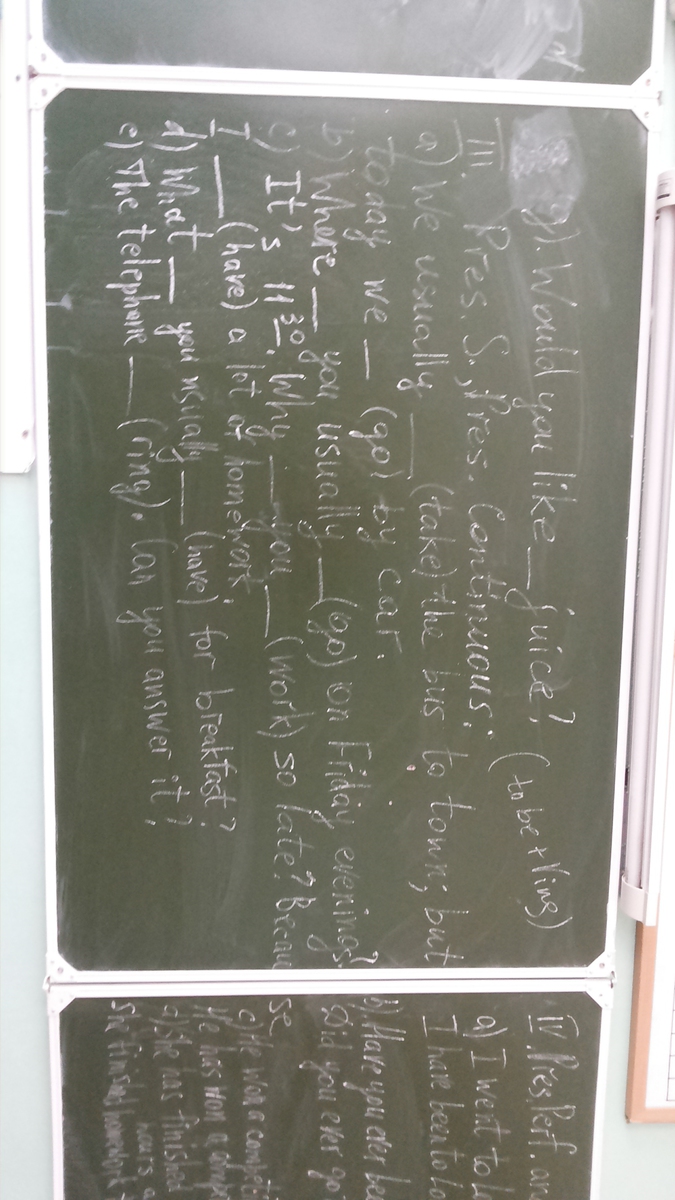 g). Would you like _ juice?
III. Pres. S., Pres. Continuous: (to be + Ving)
a) We usually __ (take) the bus to town; but
today we __ (go) by car.
b) Where __ you usually __ (go) on Friday evenings?
c) It's 11 30. Why __ you __ (work) so late? Becau
se
I __ (have) a lot of homework.
d) What __ you usually __ (have) for breakfast?
e) The telephone __ (ring). Can you answer it?
IV. Pres. Perf.
a) I went to
I have been to
b) Have you ever
Did you ever go
c) He won a
He has won a
d) She has finished
She finished